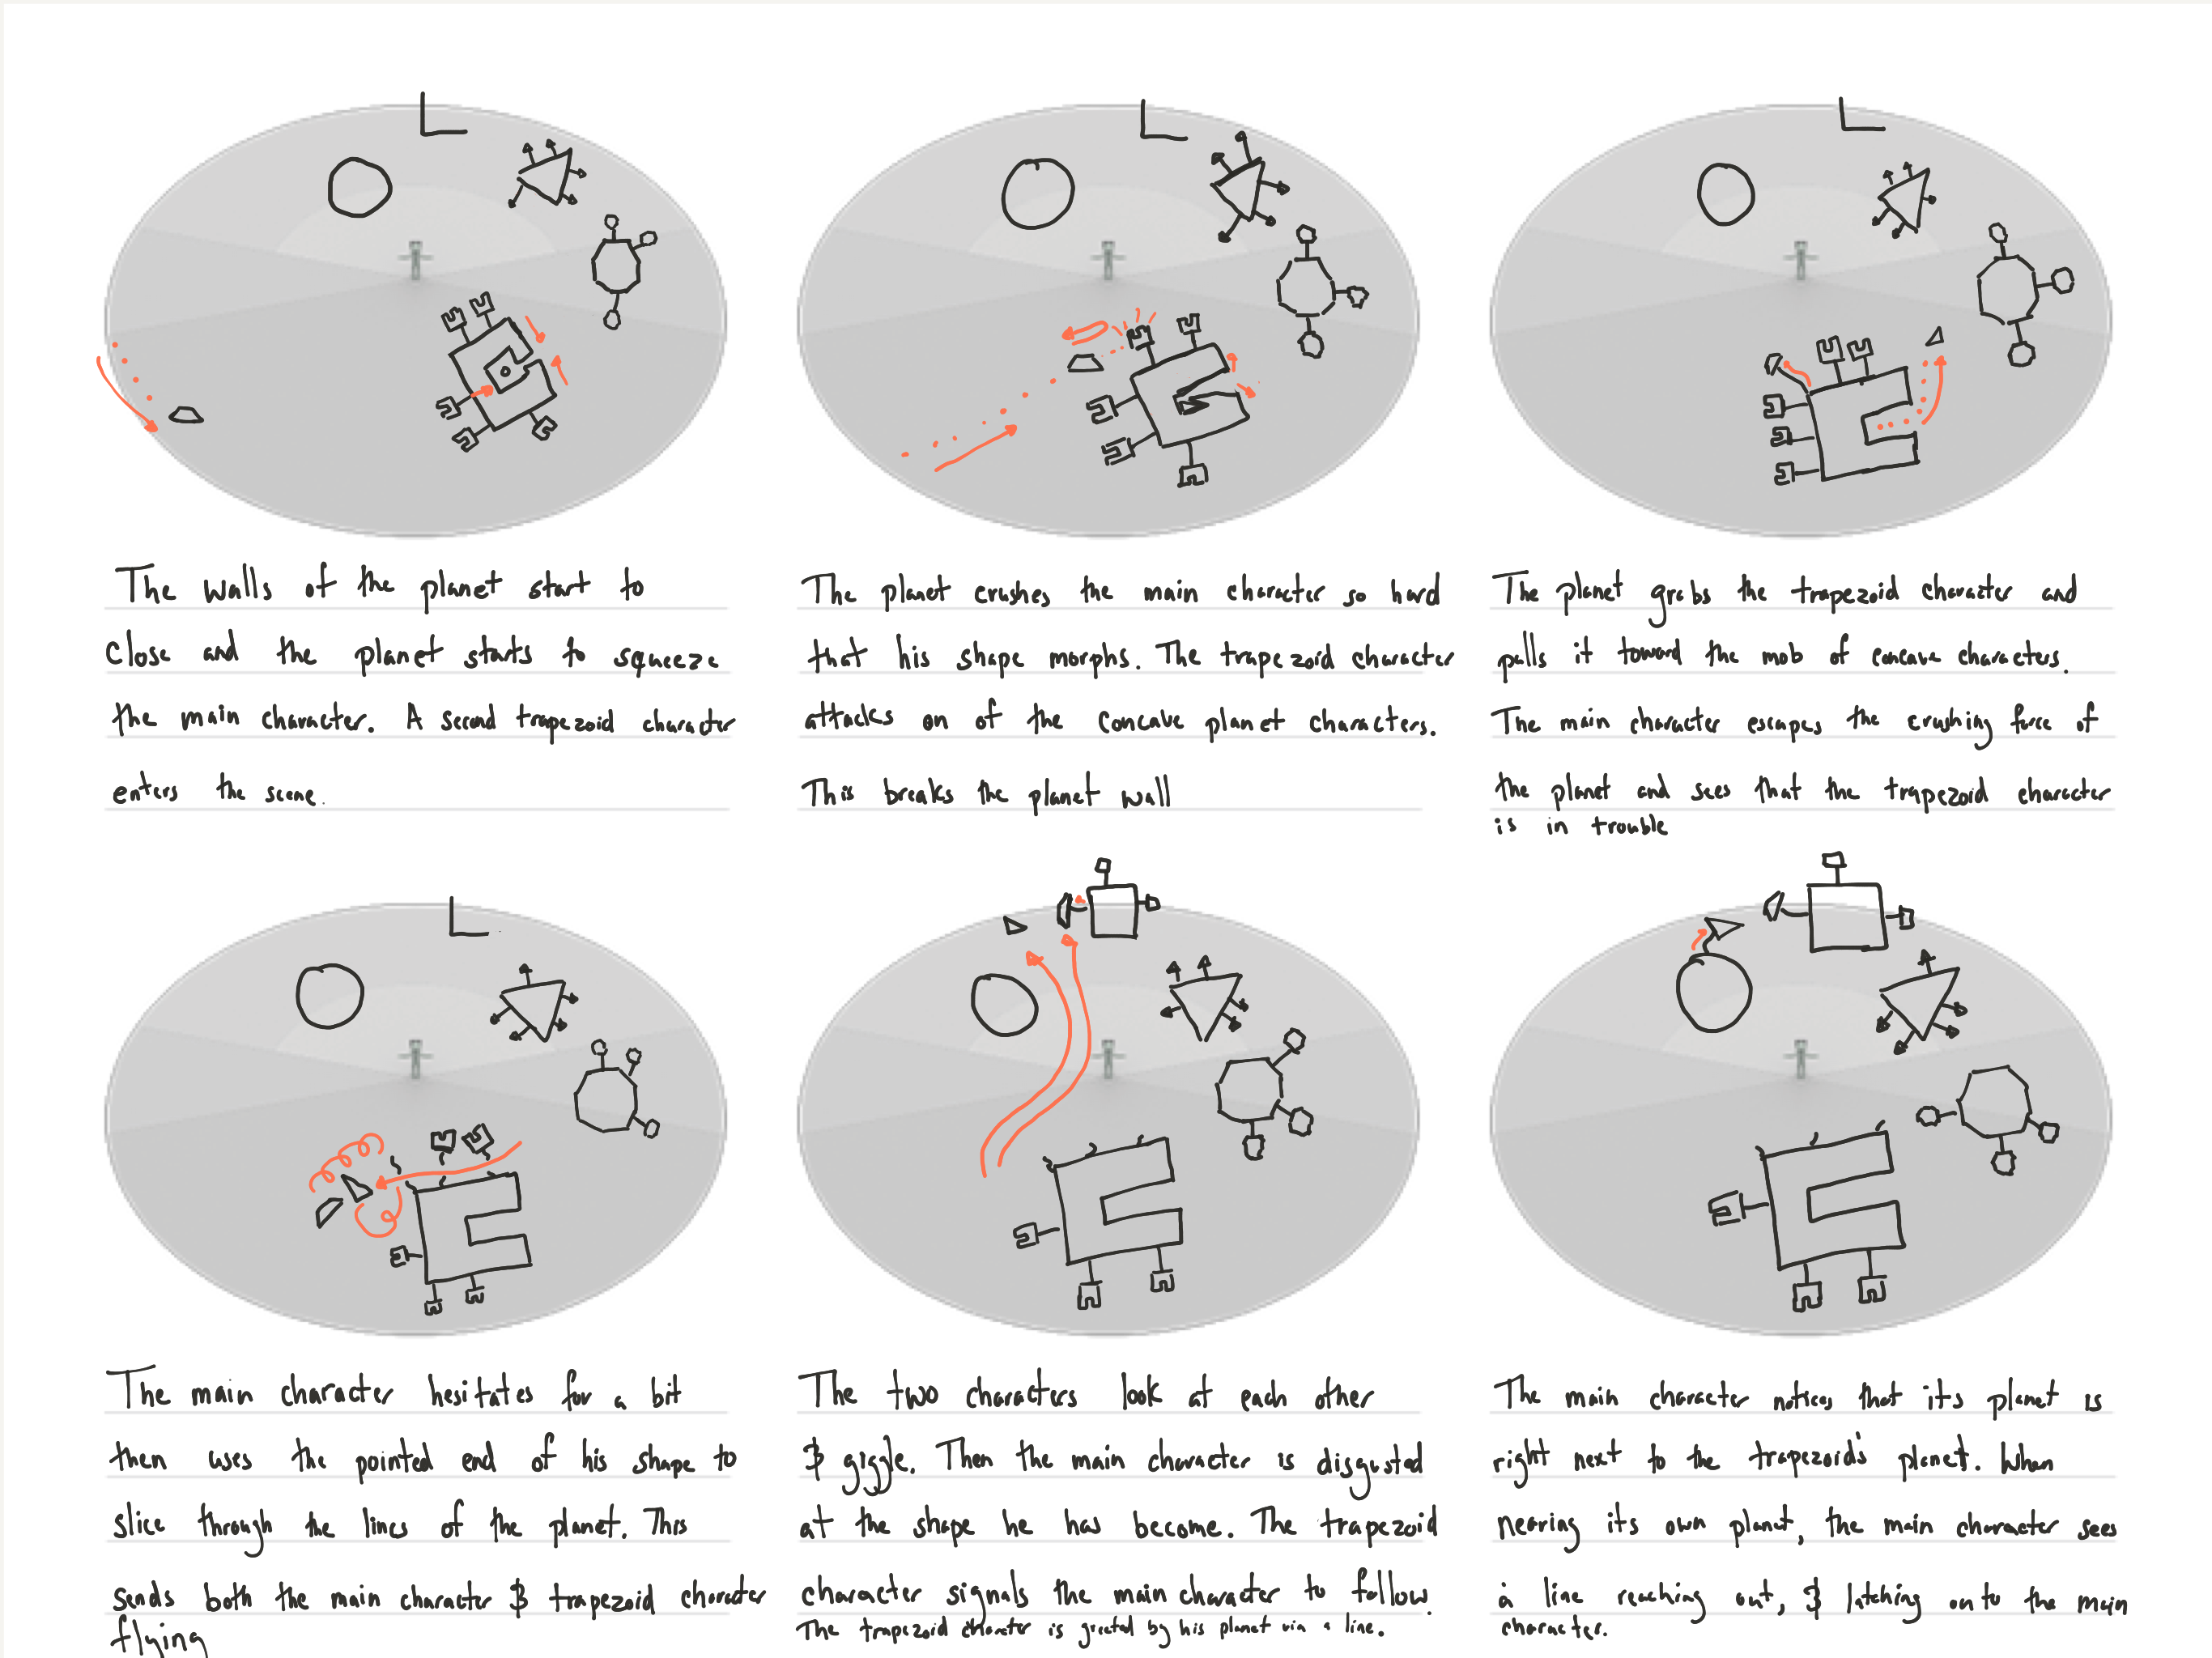 The walls of the planet start to
close and the planet starts to squeeze
the main character. A second trapezoid character
enters the scene.
The planet crushes the main character so hard
that his shape morphs. The trapezoid character
attacks on of the concave planet characters.
This breaks the planet wall
The planet grabs the trapezoid character and
pulls it toward the mob of concave characters.
The main character escapes the crushing force of
the planet and sees that the trapezoid character
is in trouble
The main character hesitates for a bit
then uses the pointed end of his shape to
slice through the lines of the planet. This
sends both the main character & trapezoid character
flying
The two characters look at each other
& giggle. Then the main character is disgusted
at the shape he has become. The trapezoid
character signals the main character to follow.
The trapezoid character is greeted by his planet via a line.
The main character notices that its planet is
right next to the trapezoid's planet. When
nearing its own planet, the main character sees
a line reaching out, & latching onto the main
character.